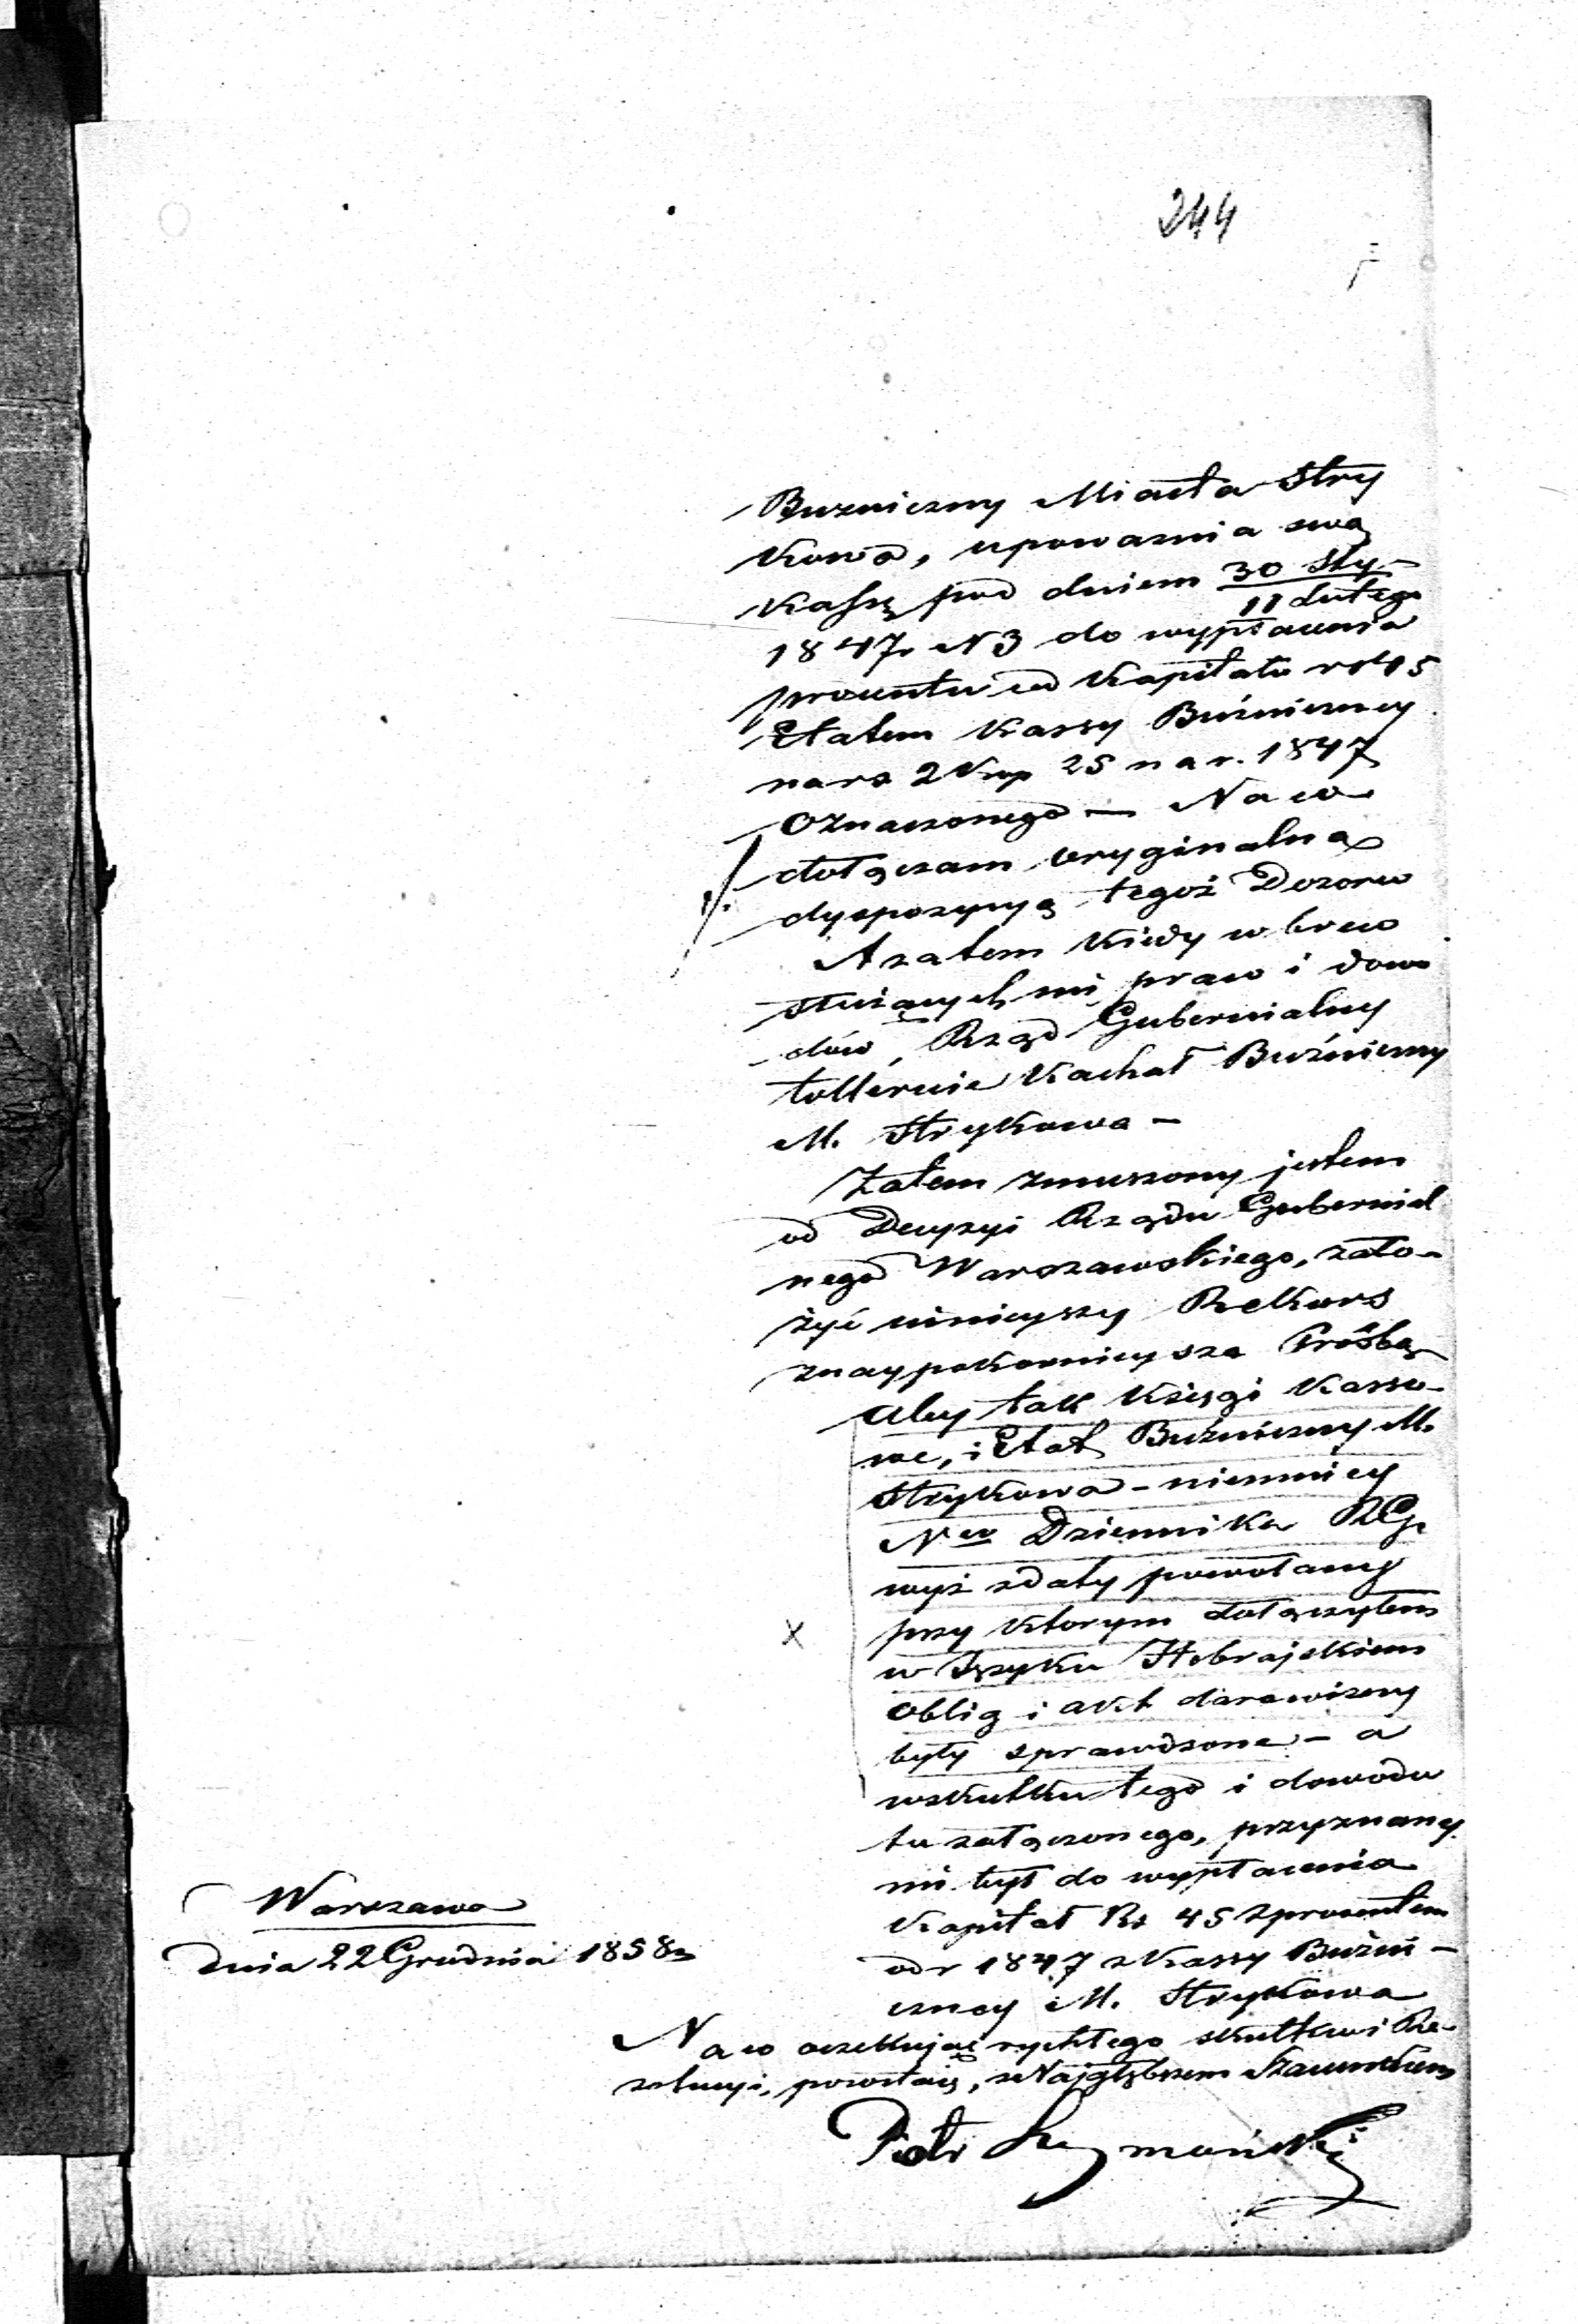 244
Buzniczny Miasta Stry
kowa, upoważnia swą
Kassę pod dniem 30 Sty-
11 Lutego
1847 N 3 do wypłacenia
procentu od Kapitału rs 45
Etatem Kassy Buźniczney
na rs 2 Kop 25 na r. 1847
Oznaczonego — Na co
dołączam oryginalną
dyspozycyą tegoż Dozoru
A zatem kiedy wbrew
służących mi praw i dowo
dów, Rząd Gubernialny
tolleruie Kachał Buźniczny
M. Strykowa —
Zatem zmuszony jestem
od Decyzyi Rządu Gubernial
nego Warszawskiego, zało-
żyć ninieyszy Rekurs
z naypokornieysza Prośbą
Aby tak Księgi Kasso-
we, i Etat Buźniczny M.
Strykowa - niemniey
Nro Dziennika RG.
wyż z daty powołany
przy ktorym dołączyłem
w Języku Hebrajskiem
Oblig i akt darowizny
były sprawdzone - a
wskutku tego i dowodu
tu załączonego, przyznany
mi był do wypłacenia
Kapitał Rs 45 z procentem
od r 1847 z Kassy Buźni-
czney M. Strykowa
Warszawa
dnia 22 Grudnia 1858
Na co oczekując rychłego skutku i Re-
zolucyi, pozostaię, z Najgłębszem Szacunkiem
Piotr Szymański